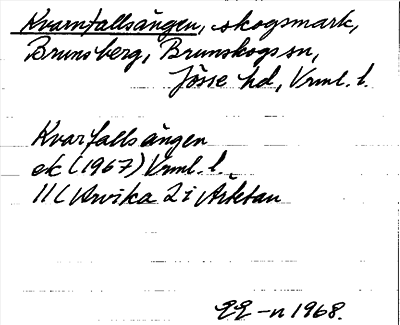 Kvarnfallsängen, skogsmark,
Brunsberg, Brunskogs sn,
Jösse hd, Vrml. l.
Kvarfallsängen
ek (1967) Vrml. l.
11C Arvika 2i
1968.